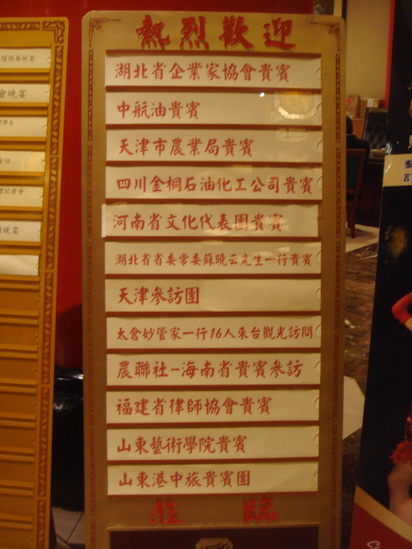 熱烈歡迎
湖北省企業家協會貴賓
中航油貴賓
天津市農業局貴賓
四川金桐石油化工公司貴賓
河南省文化代表團貴賓
湖北省省委常委蘇曉云先生一行貴賓
天津參訪團
太倉妙管家一行16人來台觀光訪問
農聯社-海南省貴賓參訪
福建省律師協會貴賓
山東藝術學院貴賓
山東港中旅貴賓團